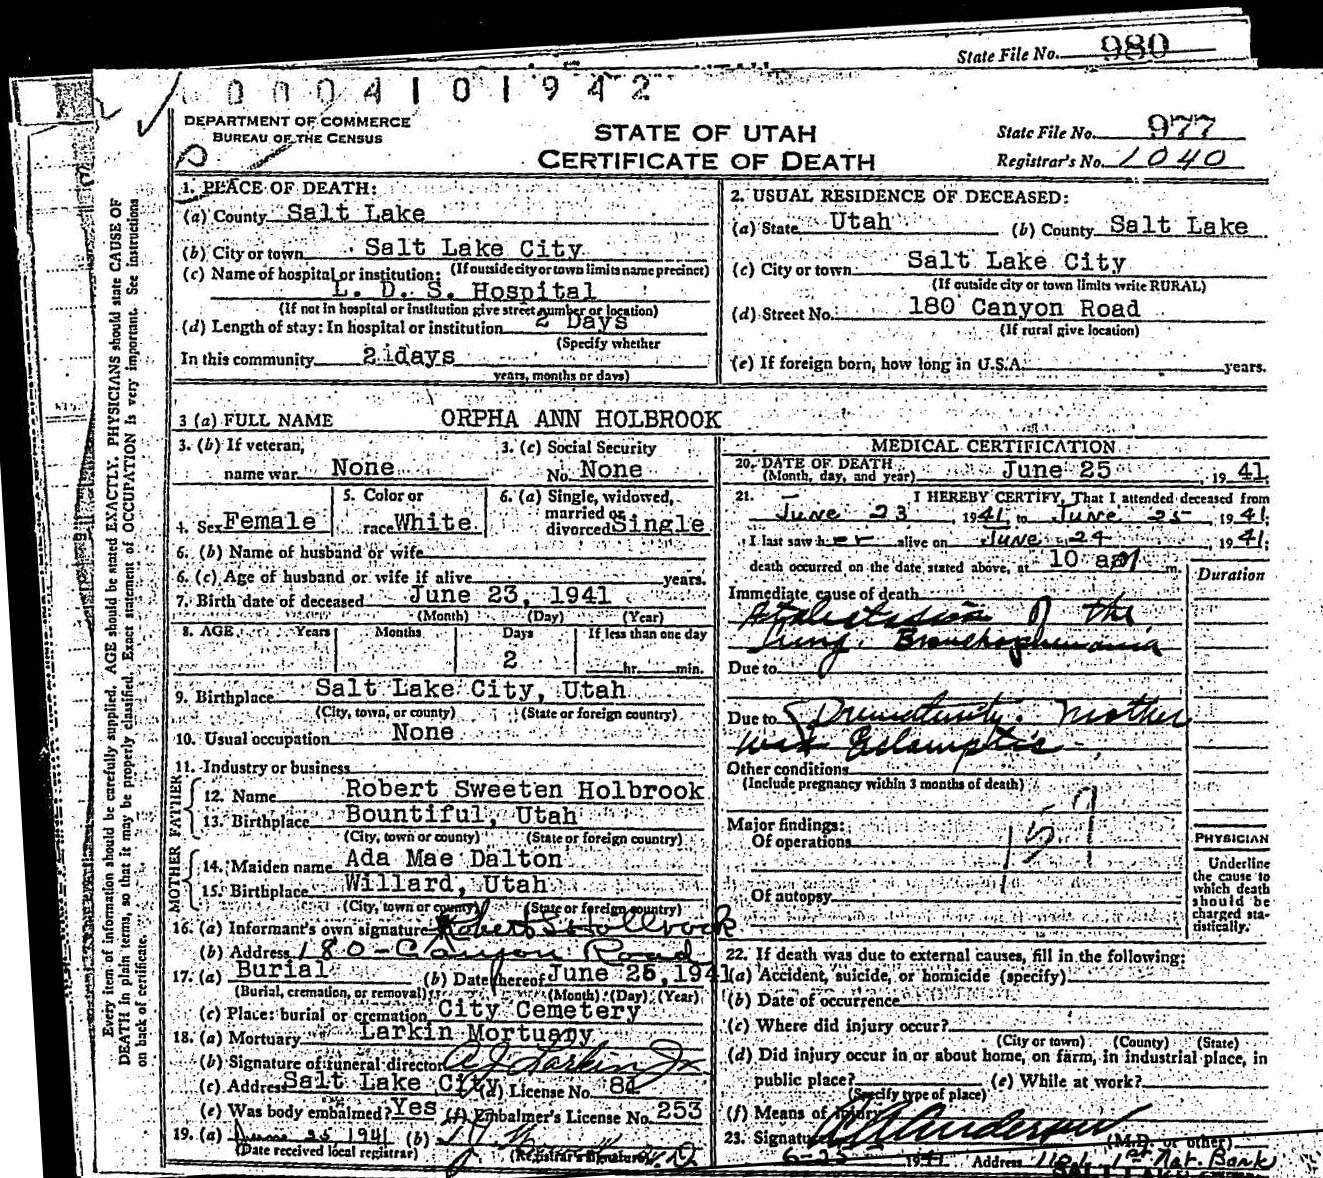 State File No. 980
0004101942
DEPARTMENT OF COMMERCE
BUREAU OF THE CENSUS
STATE OF UTAH
CERTIFICATE OF DEATH
State File No. 977
Registrar's No. 1040
Every item of information should be carefully supplied. AGE should be stated EXACTLY. PHYSICIANS should state CAUSE OF
DEATH in plain terms, so that it may be properly classified. Exact statement of OCCUPATION is very important. See instructions
on back of certificate.
1. PLACE OF DEATH:
(a) County Salt Lake
(b) City or town Salt Lake City
(If outside city or town limits name precinct)
(c) Name of hospital or institution:
L. D. S. Hospital
(If not in hospital or institution give street number or location)
(d) Length of stay: In hospital or institution 2 Days
(Specify whether
In this community 2 days
years, months or days)
2. USUAL RESIDENCE OF DECEASED:
(a) State Utah (b) County Salt Lake
(c) City or town Salt Lake City
(If outside city or town limits write RURAL)
(d) Street No. 180 Canyon Road
(If rural give location)
(e) If foreign born, how long in U.S.A. years.
3 (a) FULL NAME ORPHA ANN HOLBROOK
3. (b) If veteran,
name war None
3. (c) Social Security
No. None
4. Sex Female
5. Color or
race White
6. (a) Single, widowed,
married or
divorced Single
6. (b) Name of husband or wife
6. (c) Age of husband or wife if alive years.
7. Birth date of deceased June 23, 1941
(Month) (Day) (Year)
8. AGE Years Months Days If less than one day
2 hr. min.
9. Birthplace Salt Lake City, Utah
(City, town, or county) (State or foreign country)
10. Usual occupation None
11. Industry or business
FATHER
12. Name Robert Sweeten Holbrook
13. Birthplace Bountiful, Utah
(City, town or county) (State or foreign country)
MOTHER
14. Maiden name Ada Mae Dalton
15. Birthplace Willard, Utah
(City, town or county) (State or foreign country)
16. (a) Informant's own signature Robert S Holbrook
(b) Address 180 - Canyon Road
17. (a) Burial (b) Date thereof June 26, 1941
(Burial, cremation, or removal) (Month) (Day) (Year)
(c) Place: burial or cremation City Cemetery
18. (a) Mortuary Larkin Mortuary
(b) Signature of funeral director A J Larkin Jr
(c) Address Salt Lake City (d) License No. 81
(e) Was body embalmed? Yes (f) Embalmer's License No. 253
19. (a) June 25 1941 (b)
(Date received local registrar) (Registrar's signature)
MEDICAL CERTIFICATION
20. DATE OF DEATH June 25, 1941
(Month, day, and year)
21. I HEREBY CERTIFY, That I attended deceased from
June 23, 1941, to June 25, 1941;
I last saw her alive on June 24, 1941;
death occurred on the date stated above, at 10 a m.
Duration
Immediate cause of death
Atelectasis of the
lung. Bronchopneumonia
Due to
Due to Prematurity. Mother
was Eclamptic
Other conditions
(Include pregnancy within 3 months of death)
159
Major findings:
Of operations
Of autopsy
PHYSICIAN
Underline
the cause to
which death
should be
charged sta-
tistically.
22. If death was due to external causes, fill in the following:
(a) Accident, suicide, or homicide (specify)
(b) Date of occurrence
(c) Where did injury occur?
(City or town) (County) (State)
(d) Did injury occur in or about home, on farm, in industrial place, in
public place? (e) While at work?
(Specify type of place)
(f) Means of injury
23. Signature Anderson (M.D. or other)
6-25 1941 Address 1101 1st Nat. Bank